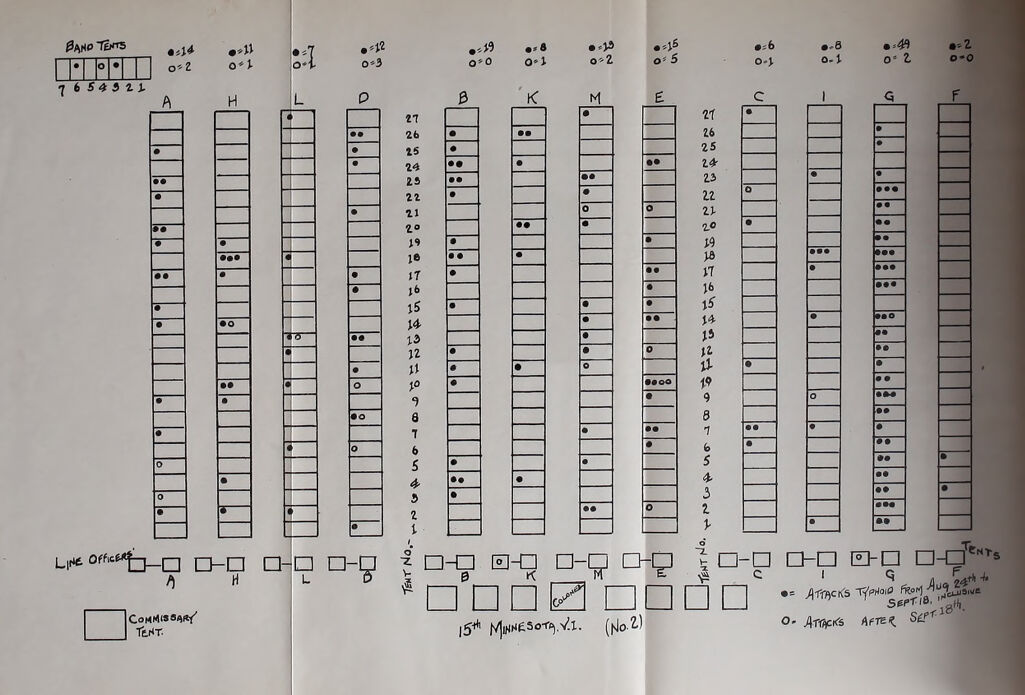 BAND TENTS
●=14 ●=11 ●=7 ●=12 ●=19 ●=8 ●=13 ●=15 ●=6 ●-8 ●=49 ●=2
O=2 O=1 O=1 O=3 O=0 O=1 O=2 O=5 O-1 O-1 O=2 O=0
7 6 5 4 3 2 1
A H L D B K M E C I G F
27 27
26 26
25 25
24 24
23 23
22 22
21 21
20 20
19 19
18 18
17 17
16 16
15 15
14 14
13 13
12 12
11 11
10 10
9 9
8 8
7 7
6 6
5 5
4 4
3 3
2 2
1 1
TENT NO.- TENT NO.
LINE OFFICERS' TENTS
A H L D B K M E C I G F
COLONEL
COMMISSARY
TENT.
15th MINNESOTA, V.I. (No. 2)
●= ATTACKS TYPHOID FROM AUG 24th to
SEPT. 18, INCLUSIVE
O- ATTACKS AFTER SEPT. 18th.